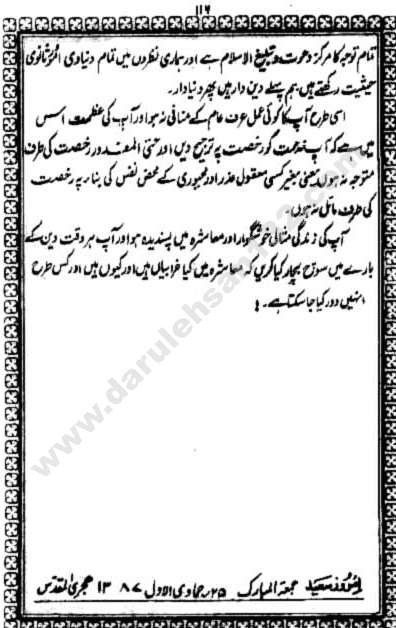 ۱۱۶
تمام توجہ کا مرکز دعوت و تبلیغ الاسلام ہے اور ہماری نظروں میں تمام دنیاوی امور ثانوی
حیثیت رکھتے ہیں ہم پہلے دین دار ہیں پھر دنیا دار۔
اسی طرح آپ کا کوئی عمل عرف عام کے منافی نہ ہو اور آپ کی عظمت اسس
میں ہے کہ آپ خدمت کو رخصت پہ ترجیح دیں اور حتی المقدور رخصت کی طرف
متوجہ نہ ہوں یعنی بغیر کسی معقول عذر اور مجبوری کے محض نفس کی بناء پہ رخصت
کی طرف مائل نہ ہوں۔
آپ کی زندگی مثالی خوشگوار اور معاشرہ میں پسندیدہ ہو اور آپ ہر وقت دین کے
بارے میں سوچ بچار کیا کریں کہ معاشرہ میں کیا خرابیاں ہیں اور کیوں ہیں اور کس طرح
انہیں دور کیا جا سکتا ہے۔ !
www.darulehsan
سعید جمعۃ المبارک ۲۵ جمادی الاول ۸۷ ۱۳ ہجری المقدس